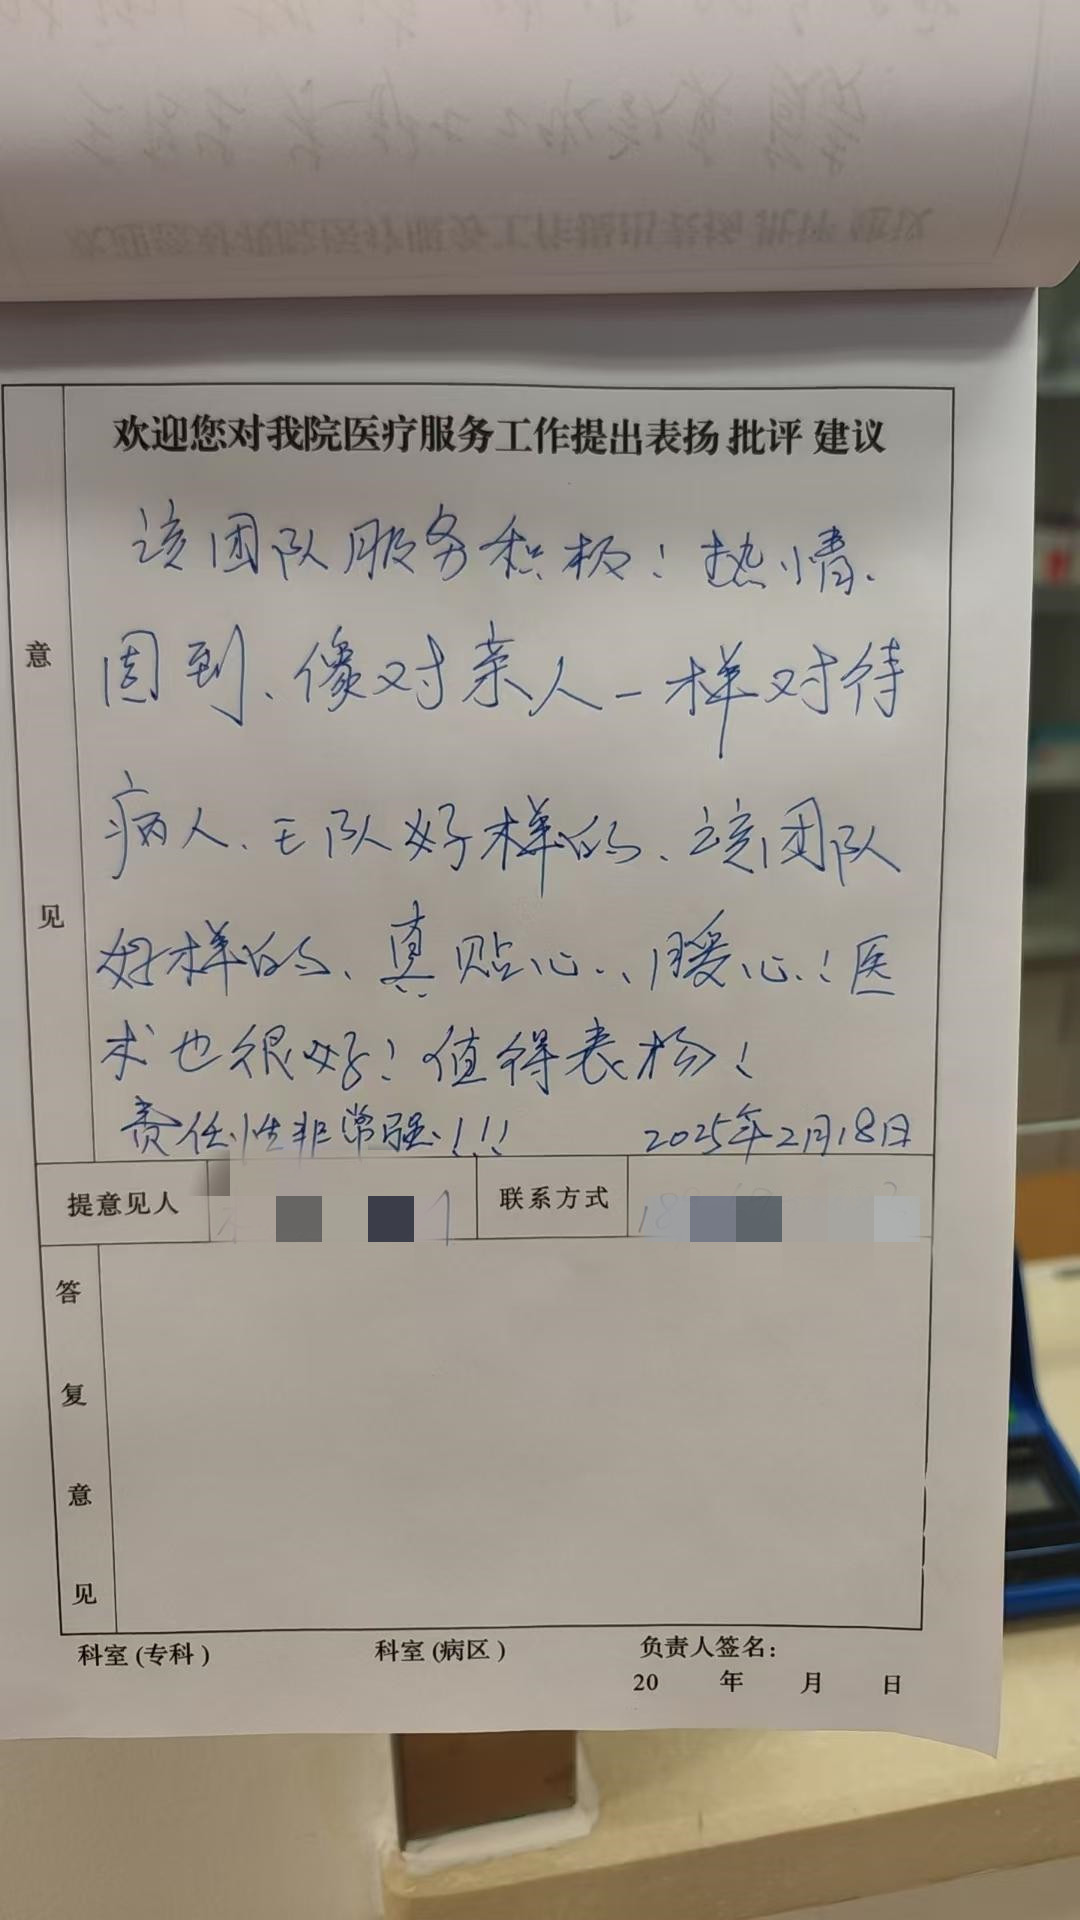 欢迎您对我院医疗服务工作提出表扬 批评 建议
意见
该团队服务积极！热情、
周到、像对亲人一样对待
病人、王队好样的、该团队
好样的、真贴心、暖心！医
术也很好！值得表扬！
责任性非常强！！！ 2025年2月18日
提意见人
联系方式
答复意见
科室(专科) 科室(病区) 负责人签名：
20 年 月 日